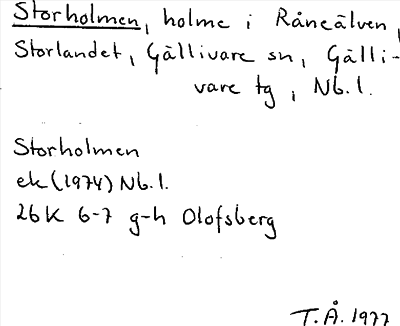 Storholmen, holme i Råneälven,
Storlandet, Gällivare sn, Gälli-
vare tg, Nb.l.
Storholmen
ek (1974) Nb.l.
26K 6-7 g-h Olofsberg
T.Å. 1977